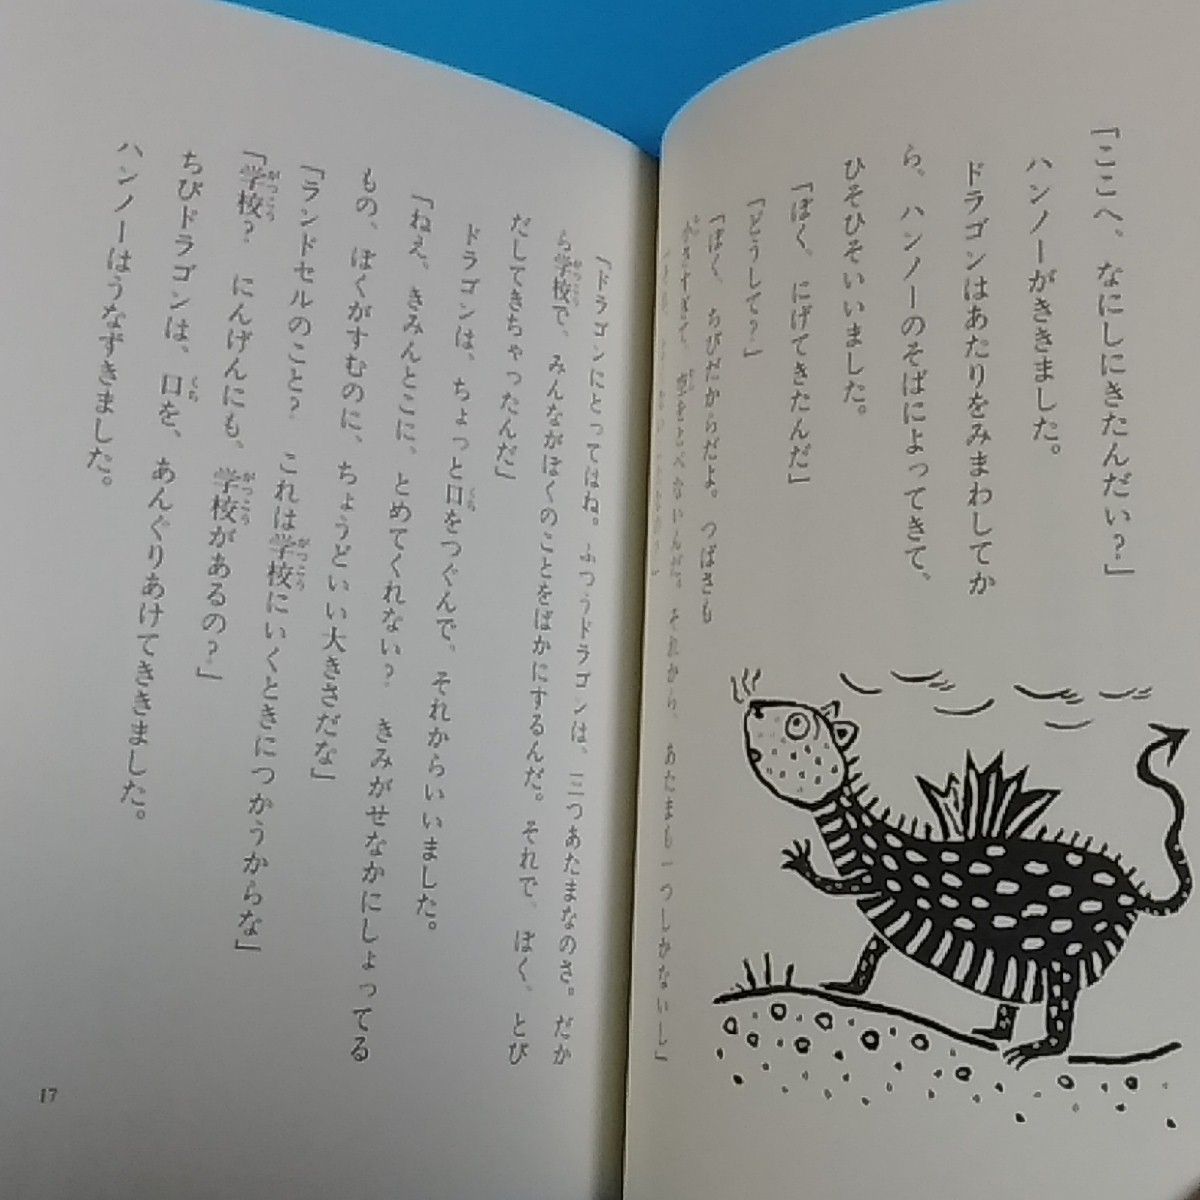 「ここへ、なにしにきたんだい?」
ハンノーがききました。
ドラゴンはあたりをみまわしてか
ら、ハンノーのそばによってきて、
ひそひそいいました。
「ぼく、にげてきたんだ」
「どうして?」
「ぼく、ちびだからだよ。つばさも
小さすぎて、空をとべないんだ。それから、あたまも一つしかないし」
「ドラゴンにとってはね。ふつうドラゴンは、三つあたまなのさ。だか
ら学校で、みんながぼくのことをばかにするんだ。それで、ぼく、とび
だしてきちゃったんだ」
ドラゴンは、ちょっと口をつぐんで、それからいいました。
「ねえ、きみんとこに、とめてくれない? きみがせなかにしょってる
もの、ぼくがすむのに、ちょうどいい大きさだな」
「ランドセルのこと? これは学校にいくときにつかうからな」
「学校? にんげんにも、学校があるの?」
ちびドラゴンは、口を、あんぐりあけてききました。
ハンノーはうなずきました。
17